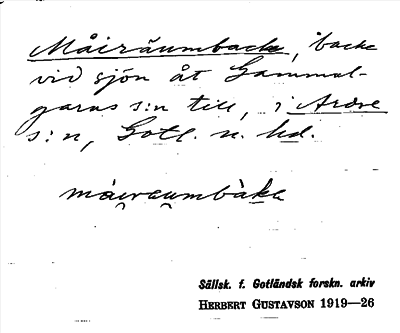 Måiräumbacke, backe
vid sjön åt Gammal-
garns s:n till, i Ardre
s:n, Gotl. n. hd.
mái̯rau̯mbàka
Sällsk. f. Gotländsk forskn. arkiv
HERBERT GUSTAVSON 1919—26